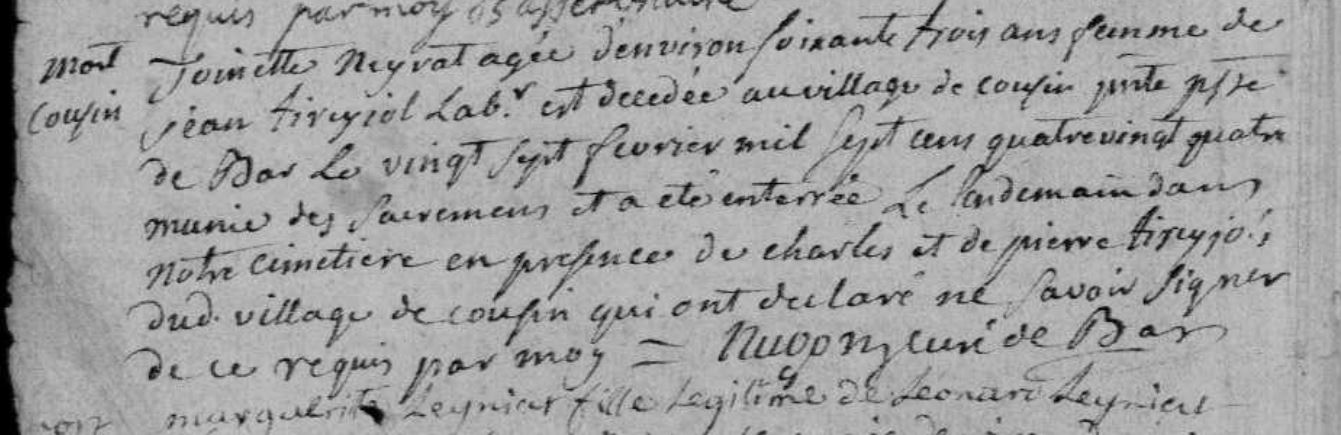 requis par moy
mort Toinette Neyrat agée denviron soixante trois ans femme de
Cousin jean tireyjol Lab.r est decedée au village de cousin pnte psse
de Bar Le vingt sept fevrier mil sept cens quatrevingt quatre
munie des sacremens et a eté enterrée Le Lendemain dans
notre cimetiere en presence de charles et de pierre tireyjols
dud. village de cousin qui ont declaré ne savoir signer
de ce requis par moy = curé de Bar
marguerite Leyniat fille Legitime de Leonard Leyniat